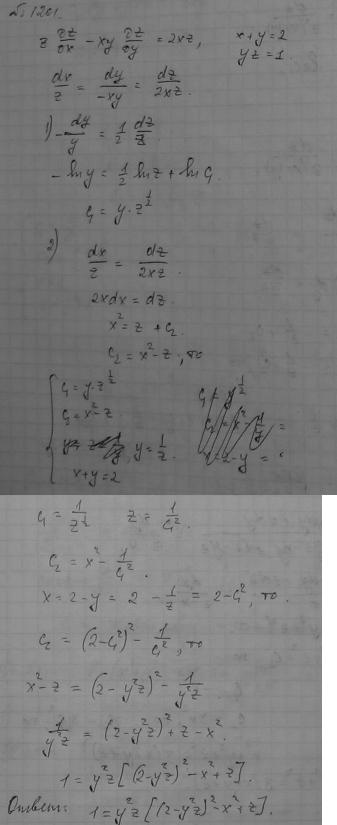 № 1201.
z ∂z/∂x − xy ∂z/∂y = 2xz, x+y=2
yz=1.
dx/z = dy/−xy = dz/2xz.
1) −dy/y = 1/2 dz/z
−ln y = 1/2 ln z + ln C₁.
C₁ = y·z^{1/2}
2) dx/z = dz/2xz.
2xdx = dz.
x² = z + C₂.
C₂ = x²−z, то
C₁ = y·z^{1/2}
C₂ = x²−z.
y = 1/z.
x+y=2
C₁ = 1/z^{1/2} z = 1/C₁².
C₂ = x² − 1/C₁².
x = 2−y = 2 − 1/z = 2−C₁², то.
C₂ = (2−C₁²)² − 1/C₁², то
x²−z = (2−y²z)² − 1/y²z
1/y²z = (2−y²z)² + z − x².
1 = y²z[(2−y²z)² − x² + z].
Ответ: 1 = y²z[(2−y²z)² − x² + z].